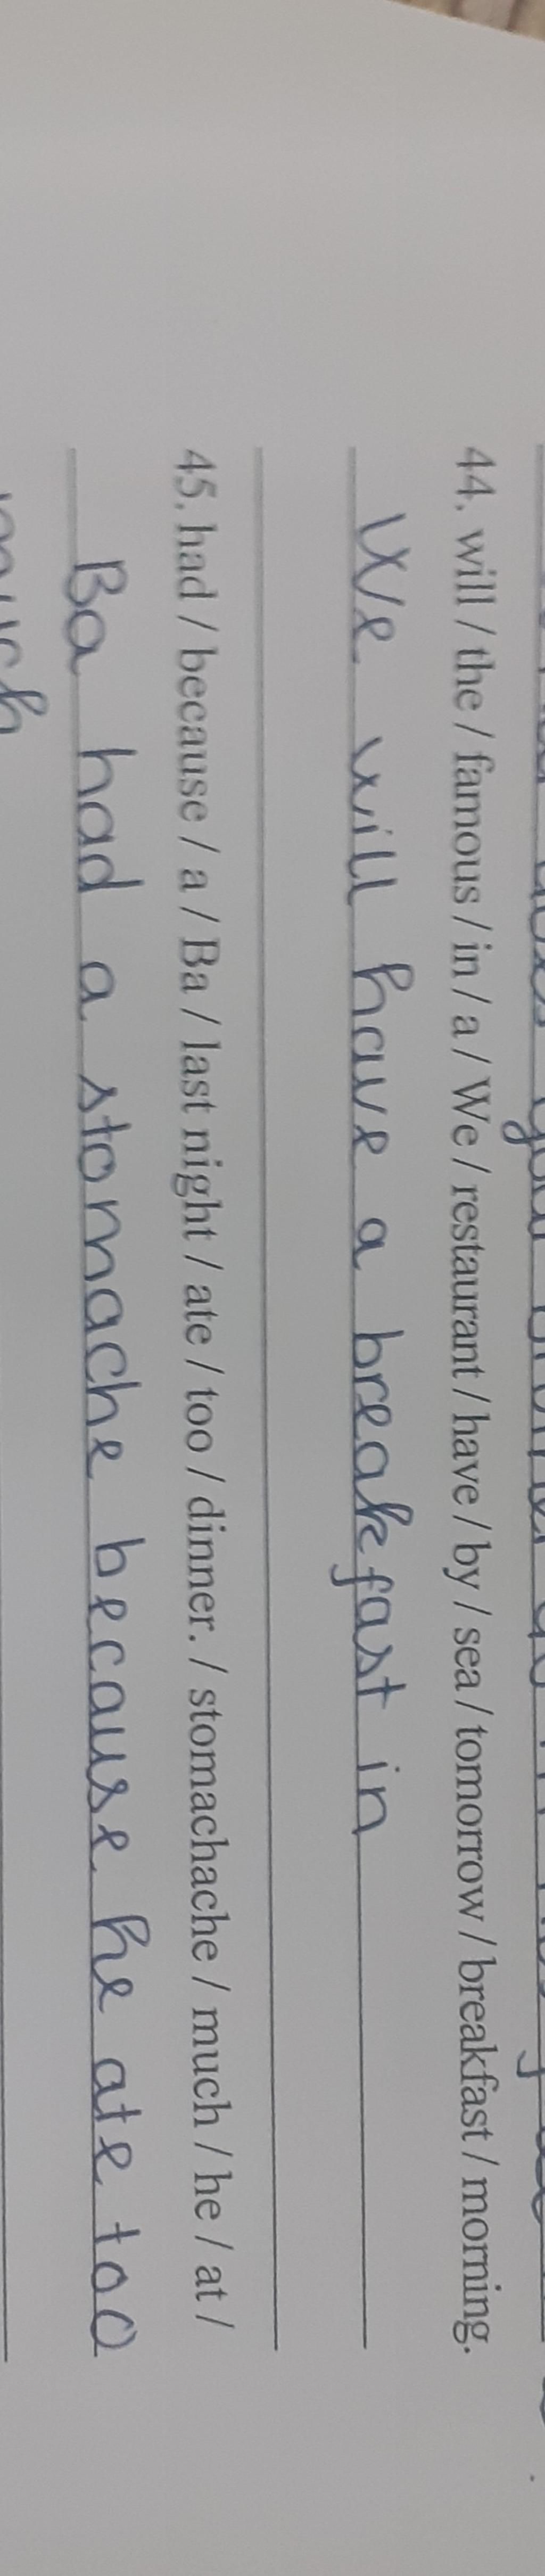 44. will / the / famous / in / a / We / restaurant / have / by / sea / tomorrow / breakfast / morning.
We will have a breakfast in
45. had / because / a / Ba / last night / ate / too / dinner. / stomachache / much / he / at /
Ba had a stomache because he ate too
much